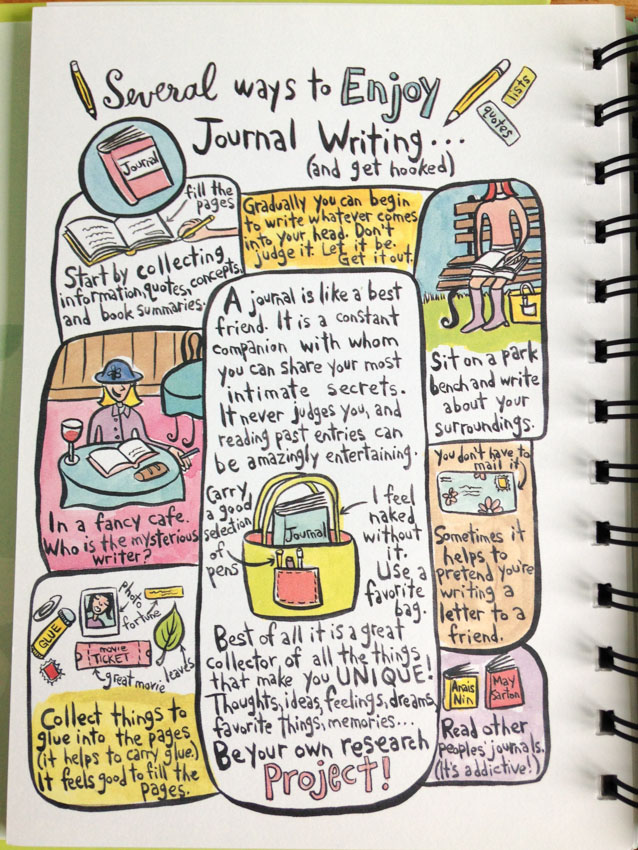 Several ways to Enjoy
Journal Writing...
(and get hooked)
lists
quotes
Journal
fill the
pages
Start by collecting
information, quotes, concepts,
and book summaries.
Gradually you can begin
to write whatever comes
into your head. Don't
judge it. Let it be.
Get it out.
Sit on a park
bench and write
about your
surroundings.
A journal is like a best
friend. It is a constant
companion with whom
you can share your most
intimate secrets.
It never judges you, and
reading past entries can
be amazingly entertaining.
Carry
a good
selection
of
pens
Journal
I feel
naked
without
it.
Use a
favorite
bag.
Best of all it is a great
collector of all the things
that make you UNIQUE!
Thoughts, ideas, feelings, dreams,
favorite things, memories...
Be your own research
Project!
In a fancy cafe.
Who is the mysterious
writer?
You don't have to
mail it
Sometimes it
helps to
pretend you're
writing a
letter to a
friend.
GLUE
photo
fortune
movie
TICKET
great movie
leaves
Collect things to
glue into the pages
(it helps to carry glue.)
It feels good to fill the
pages.
Anais
Nin
May
Sarton
Read other
peoples' journals.
(It's addictive!)